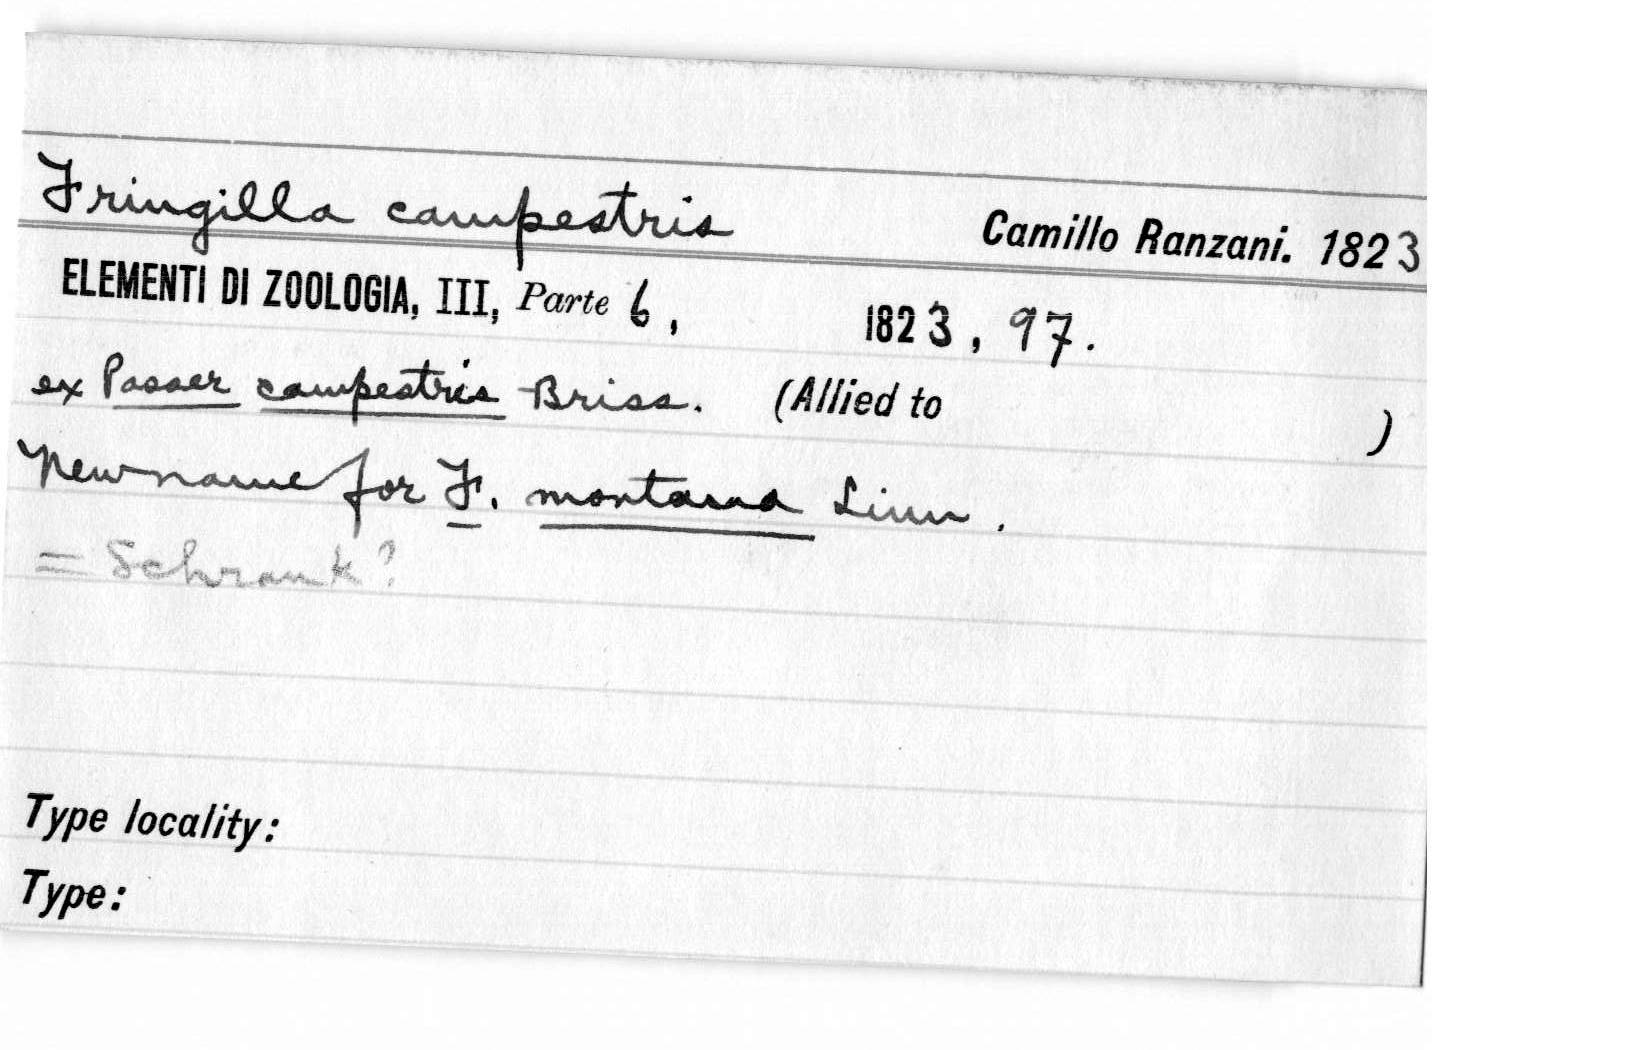 Fringilla campestris Camillo Ranzani. 1823
ELEMENTI DI ZOOLOGIA, III, Parte 6, 1823, 97.
ex Passer campestris Briss. (Allied to )
New name for F. montana Linn.
= Schrank?
Type locality:
Type: